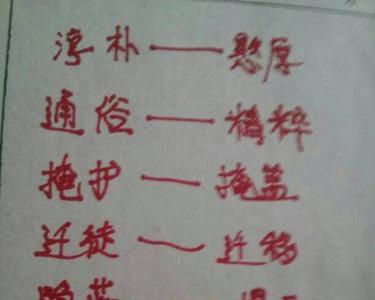 淳朴——憨厚
通俗——精粹
掩护——掩盖
迁徒——迁移
隐蔽